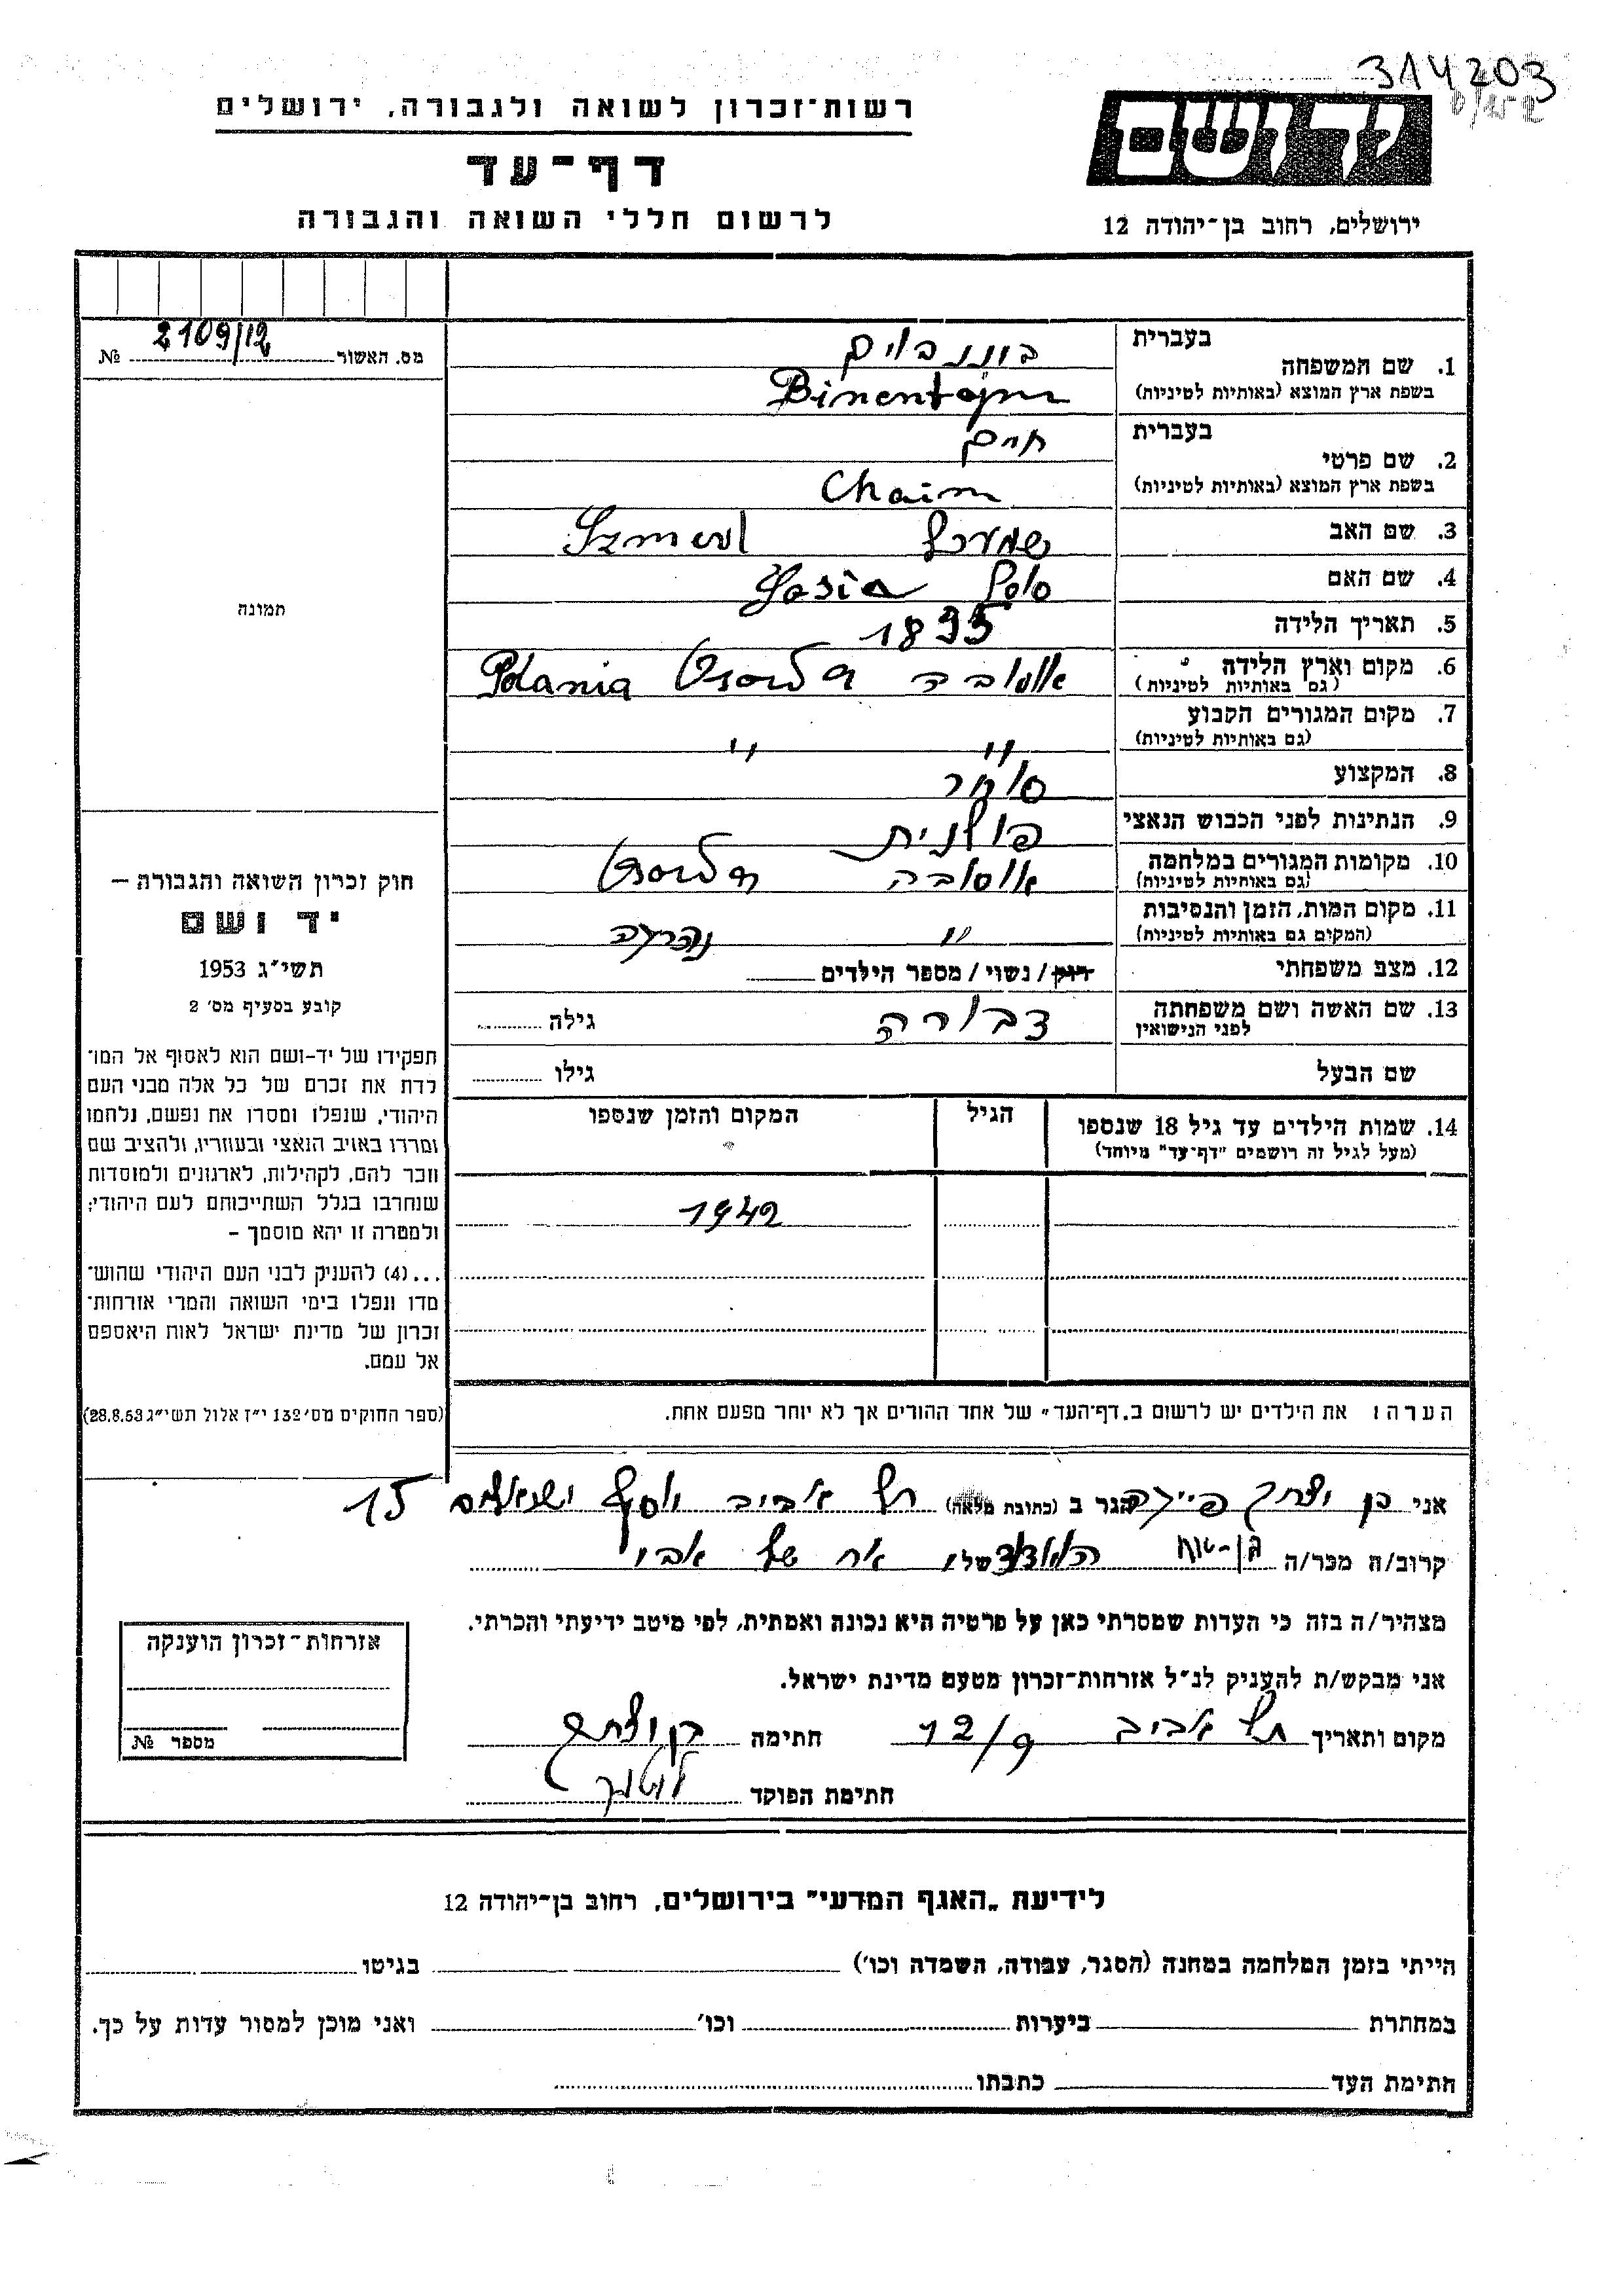 314203
רשות-זכרון לשואה ולגבורה, ירושלים
יד ושם
דף-עד
לרשום חללי השואה והגבורה
ירושלים, רחוב בן-יהודה 12
מס. האשור 2109/12 №
תמונה
חוק זכרון השואה והגבורה —
יד ושם
תשי״ג 1953
קובע בסעיף מס׳ 2
תפקידו של יד-ושם הוא לאסוף אל המו־
לדת את זכרם של כל אלה מבני העם
היהודי, שנפלו ומסרו את נפשם, נלחמו
ומרדו באויב הנאצי ובעוזריו, ולהציב שם
וזכר להם, לקהילות, לארגונים ולמוסדות
שנחרבו בגלל השתייכותם לעם היהודי;
ולמטרה זו יהא מוסמך —
...(4) להעניק לבני העם היהודי שהוש־
מדו ונפלו בימי השואה והמרי אזרחות־
זכרון של מדינת ישראל לאות היאספם
אל עמם.
(ספר החוקים מס׳ 132 י״ז אלול תשי״ג 28.8.53)
בעברית
1. שם המשפחה
(בשפת ארץ המוצא (באותיות לטיניות
בעברית חיים
2. שם פרטי
(בשפת ארץ המוצא (באותיות לטיניות Chaim
3. שם האב Szmeul
4. שם האם
5. תאריך הלידה 1895
6. מקום וארץ הלידה Polania
(גם באותיות לטיניות)
7. מקום המגורים הקבוע " "
(גם באותיות לטיניות)
8. המקצוע סוחר
9. הנתינות לפני הכבוש הנאצי פולנית
10. מקומות המגורים במלחמה
(גם באותיות לטיניות)
11. מקום המות, הזמן והנסיבות "
(המקום גם באותיות לטיניות)
12. מצב משפחתי רווק / נשוי / מספר הילדים
13. שם האשה ושם משפחתה דבורה גילה
לפני הנישואין
שם הבעל גילו
14. שמות הילדים עד גיל 18 שנספו הגיל המקום והזמן שנספו
(מעל לגיל זה רושמים ״דף-עד״ מיוחד)
1942
הערה: את הילדים יש לרשום ב„דף-העד״ של אחד ההורים אך לא יותר מפעם אחת.
אני בן יצחק הגר ב (כתובת מלאה) תל אביב 15
קרוב/ה מכר/ה של אח של אבי
מצהיר/ה בזה כי העדות שמסרתי כאן על פרטיה היא נכונה ואמתית, לפי מיטב ידיעתי והכרתי.
אני מבקש/ת להעניק לנ״ל אזרחות-זכרון מטעם מדינת ישראל.
מקום ותאריך תל אביב 12/9 חתימה בן יצחק
חתימת הפוקד
אזרחות-זכרון הוענקה
מספר №
לידיעת „האגף המדעי״ בירושלים, רחוב בן-יהודה 12
הייתי בזמן המלחמה במחנה (הסגר, עבודה, השמדה וכו׳) בגיטו
במחתרת ביערות וכו׳ ואני מוכן למסור עדות על כך.
חתימת העד כתבתו